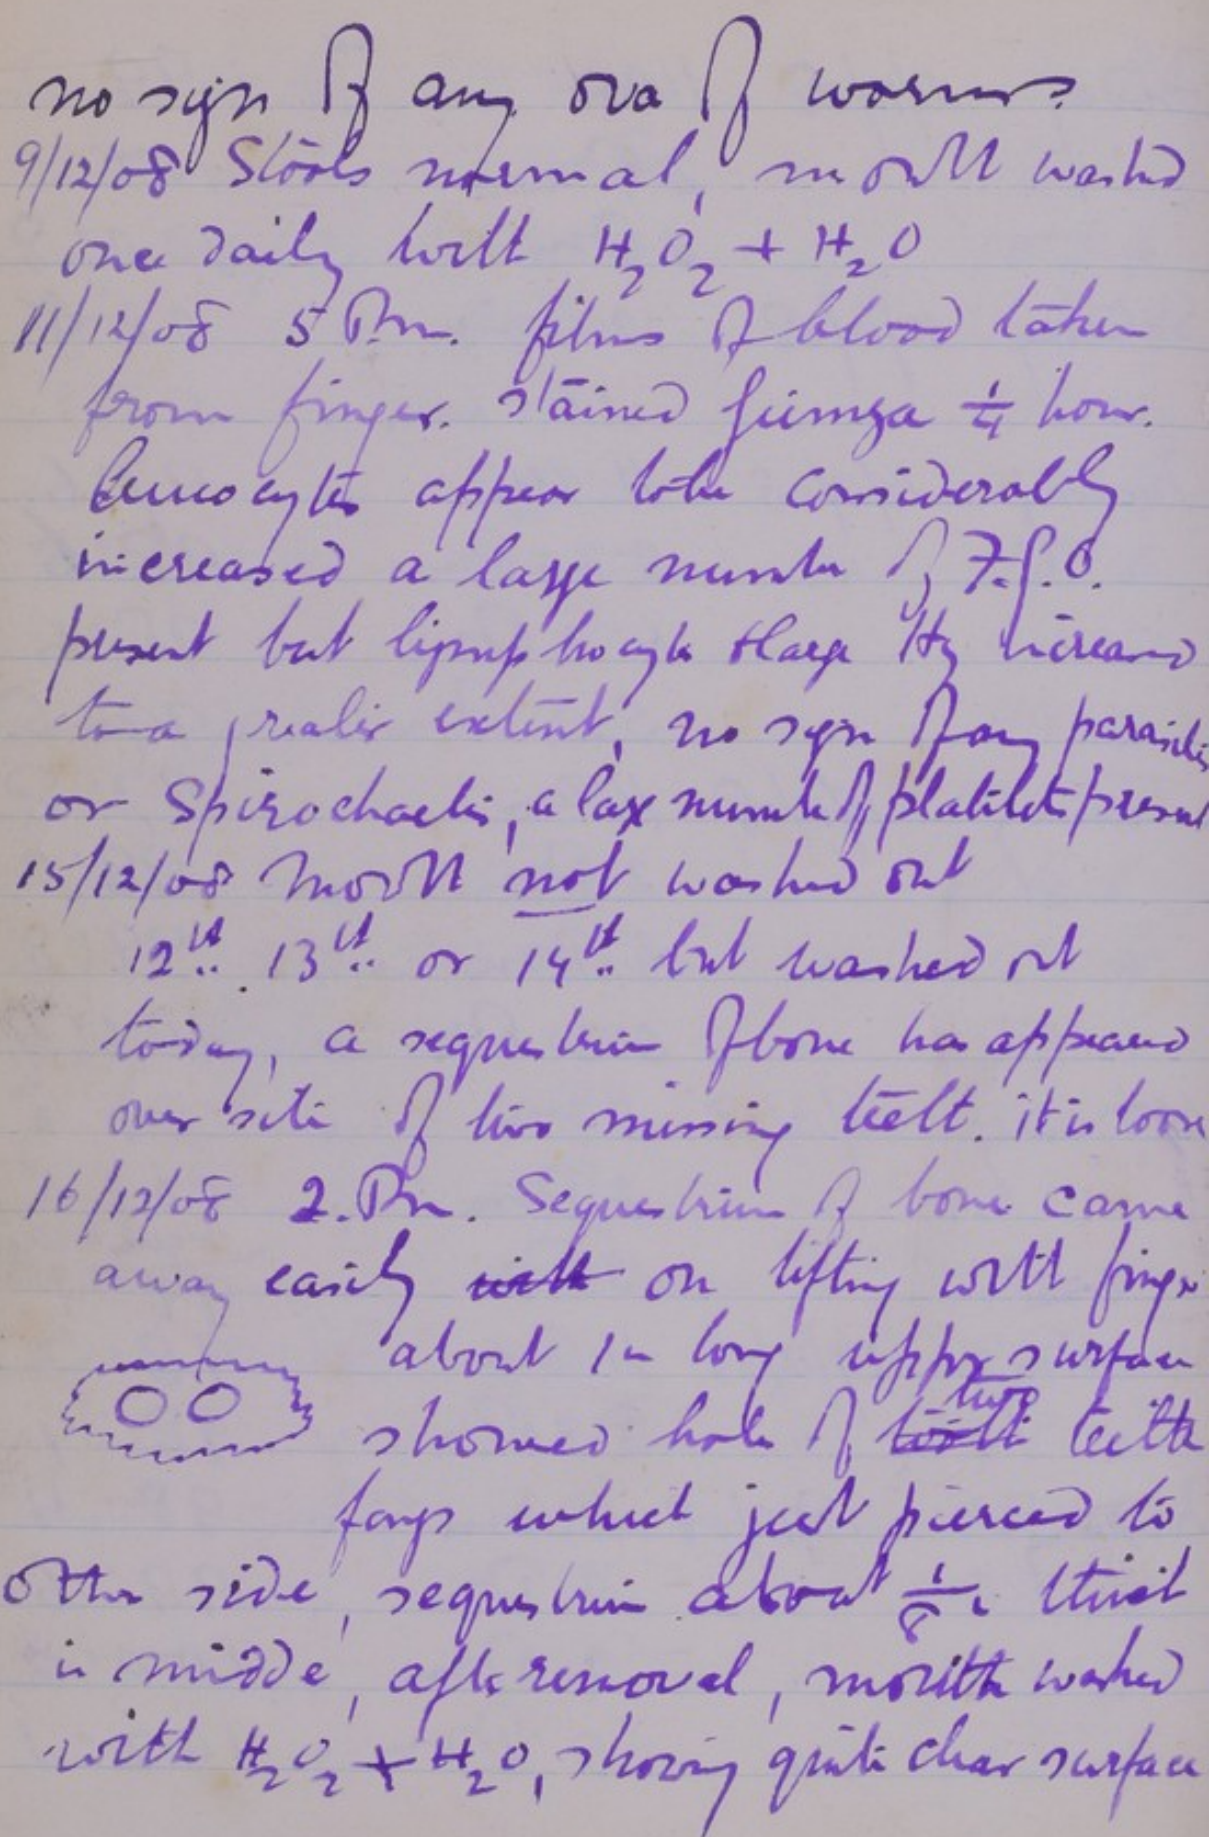 no sign of any ova of worms.
9/12/08 Stools normal, mouth washed
once daily with H2O2 + H2O
11/12/08 5 P.m. films of blood taken
from finger. stained Giemsa 1/4 hour.
Leucocytes appear to be considerably
increased a large number of F.G.O.
present but lymphocytes & large Hy increased
to a greater extent, no sign of any parasites
or Spirochaetes, a large number of platelets present
15/12/08 Mouth not washed out
12th. 13th. or 14th. but washed out
today, a sequestrum of bone has appeared
over site of two missing teeth. it is loose
16/12/08 2. Pm. Sequestrum of bone came
away easily with on lifting with finger
about 1 in long upper surface
showed hole of tooth two teeth
fangs which just pierced to
other side, sequestrum about thick
in middle, after removal, mouth washed
with H2O2 + H2O, showing quite clear surface